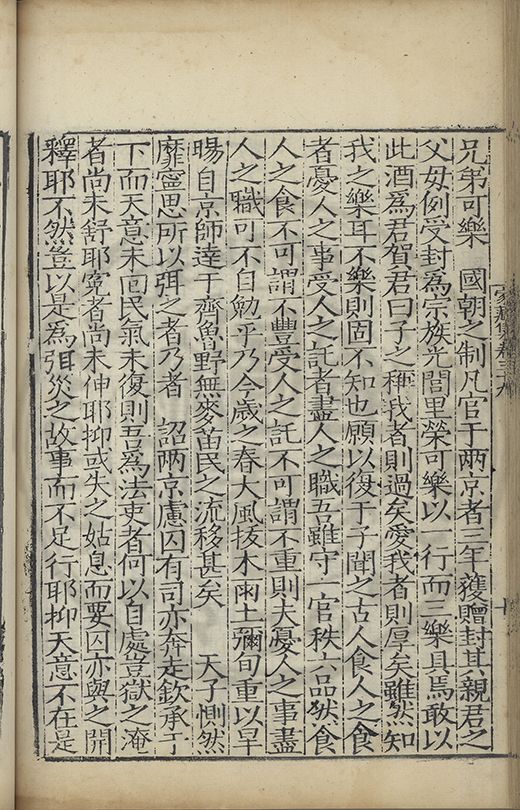 兄弟可樂　國朝之制凡官于兩京者三年獲贈封其親君之
父母例受封為宗族光閭里榮可樂以一行而三樂具焉敢以
此酒為君賀君曰子之稱我者則過矣愛我者則厚矣雖然知
我之樂耳不樂則固不知也願以復于子聞之古人食人之食
者憂人之事受人之託者盡人之職吾雖守一官秩六品然食
人之食不可謂不豐受人之託不可謂不重則夫憂人之事盡
人之職可不自勉乎乃今歲之春大風拔木雨土彌旬重以旱
暘自京師達于齊魯野無麥苗民之流移甚矣　天子惻然
靡寧思所以弭之者乃者　詔兩京慮囚有司亦奔走欽承于
下而天意未回民氣未復則吾為法吏者何以自處豈獄之淹
者尚未舒耶冤者尚未伸耶抑或失之姑息而要囚亦與之開
釋耶不然豈以是為弭災之故事而不足行耶抑天意不在是
家藏集卷三十九